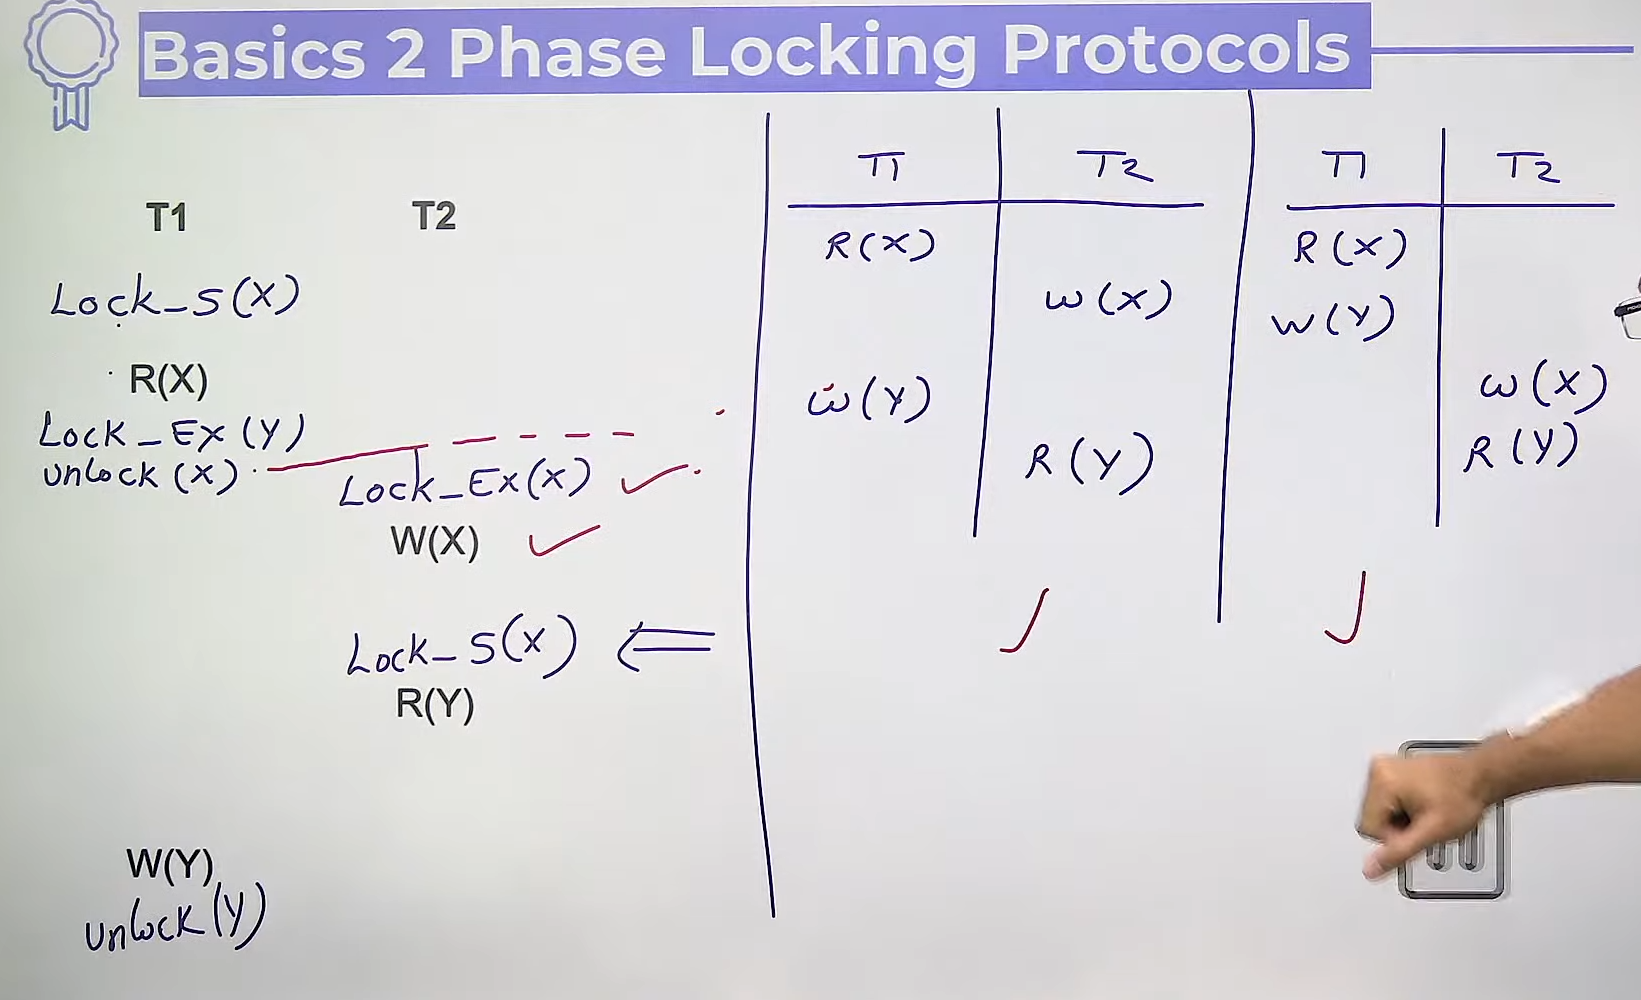 Basics 2 Phase Locking Protocols
T1 T2
Lock_S(X)
R(X)
Lock_Ex(Y)
unlock(X)
Lock_Ex(X)
W(X)
Lock_S(X)
R(Y)
W(Y)
unlock(Y)
T1 T2
R(X)
W(X)
W(Y)
R(Y)
T1 T2
R(X)
W(Y)
W(X)
R(Y)